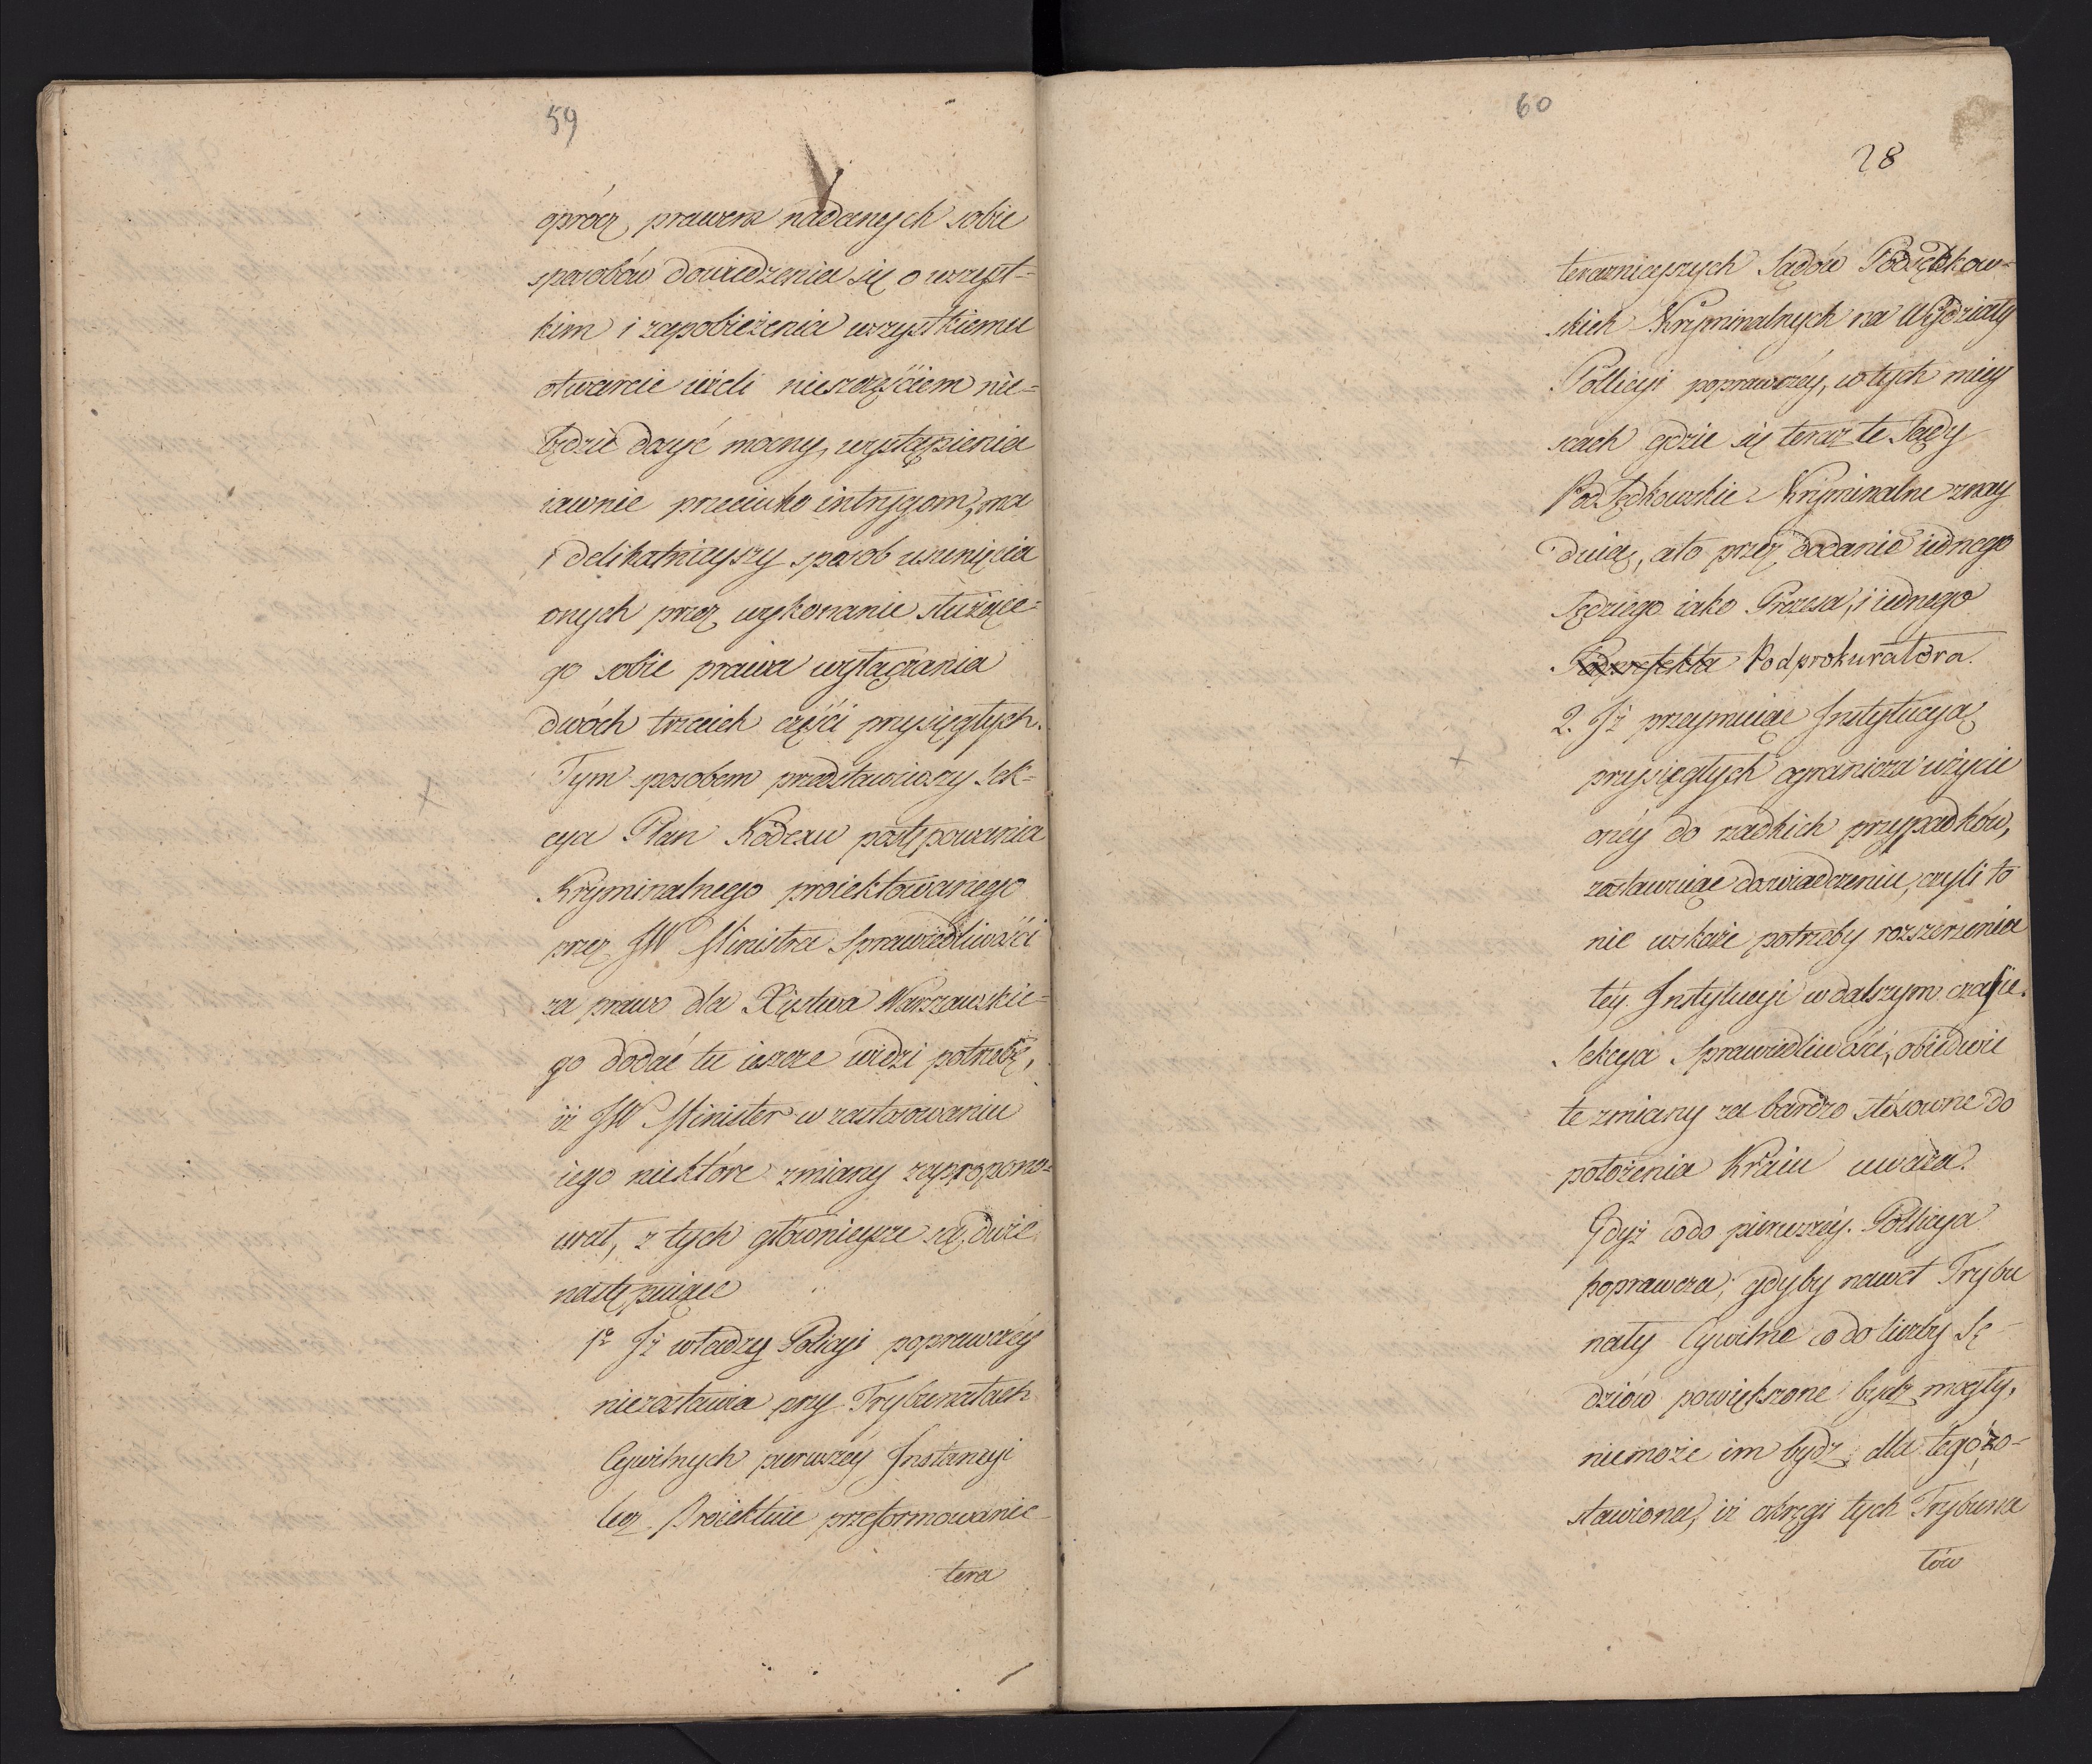 59
oprócz prawem nadanych sobie
sposobów dowiedzenia się o wszyst=
kim i zapobieżenia wszystkiemu
otwarcie ieżeli nieszczęściem nie=
będzie dosyć mocny, wystąpienia
iawnie przeciwko intrygom, ma
i delikatnieyszy sposób usunięcia
onych przez wykonanie służące=
go sobie prawa wyłączania
dwóch trzecich części przysięgłych.
Tym sposobem przedstawiwszy Sek=
cya Plan Kodexu postępowania
Kryminalnego proiektowanego
przez JW Ministra Sprawiedliwości
za prawo dla Xięstwa Warszawskie=
go dodać tu ieszcze widzi potrzebę,
iż JW Minister w zastosowaniu
iego niektóre zmiany zapropono=
wał, z tych główniejsze są dwie
następuiące
1º Iż władzy Policyi poprawczéy
niezostawia przy Trybunałach
Cywilnych pierwszéy Instancyi
lecz Proiektuie przeformowanie
tera
60
28
teraznieyszych Sądów Podsędkow=
skich Kryminalnych na Wydziały
Pollicyi poprawczéy, w tych miey
scach gdzie się teraz te Sądy
PodSędkowskie Kryminalne znay
duią, a to przez dodanie iednego
Sędziego iako Prezesa, i iednego
Podprefekta Podprokuratora.
2. Iż przymuiąc Instytucyą
przysięgłych ogranicza użycie
onéy do rzadkich przypadków,
zostawuiąc doswiadczeniu, czyli to
nie wskaże potrzeby rozszerzenia
téy Instytucyi w dalszym czasie.
Sekcya Sprawiedliwości, obiedwie
te zmiany za bardzo stósowne do
położenia Kraiu uważa.
Gdyż co do pierwszéy. Pollicya
poprawcza, gdyby nawet Trybu
nały Cywilne co do liczby Sę
dziów powiększone bydz mogły,
niemoże im bydz dla tego zo=
stawiona, iż okręgi tych Trybuna
łów